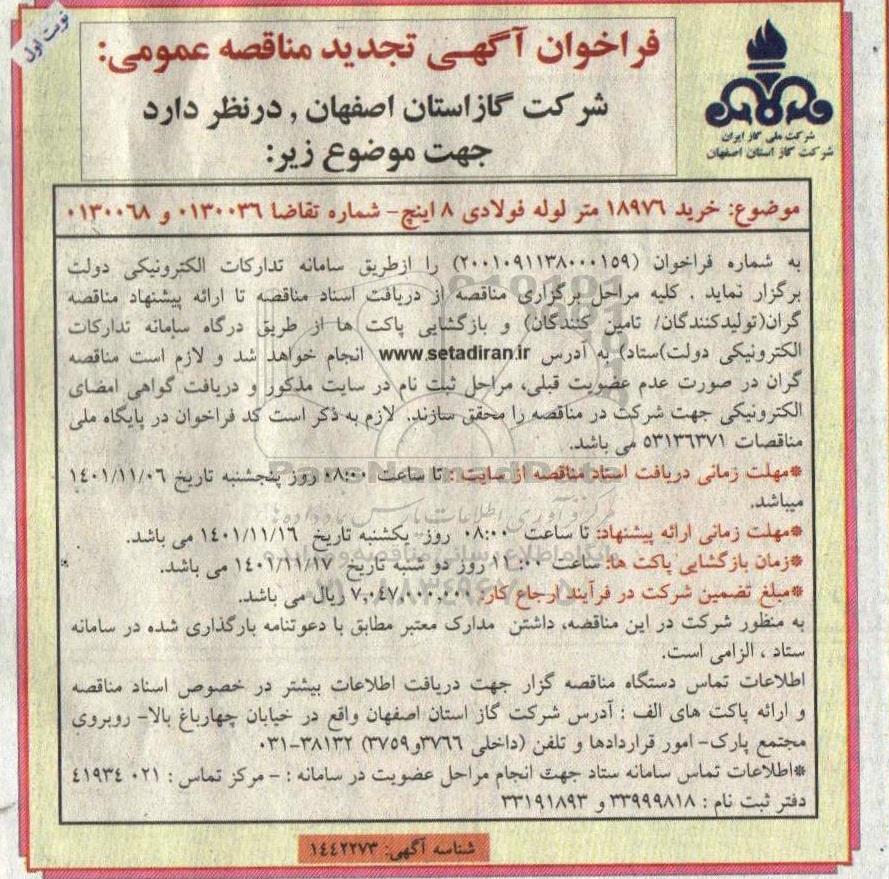 نوبت اول
فراخوان آگهی تجدید مناقصه عمومی:
شرکت گاز استان اصفهان , درنظر دارد
جهت موضوع زیر:
شرکت ملی گاز ایران
شرکت گاز استان اصفهان
موضوع: خرید ۱۸۹۷۶ متر لوله فولادی ۸ اینچ- شماره تقاضا ۰۱۳۰۰۳۶ و ۰۱۳۰۰۶۸
به شماره فراخوان (۲۰۰۱۰۹۱۱۳۸۰۰۰۱۵۹) را ازطریق سامانه تدارکات الکترونیکی دولت
برگزار نماید . کلیه مراحل برگزاری مناقصه از دریافت اسناد مناقصه تا ارائه پیشنهاد مناقصه
گران(تولیدکنندگان/ تامین کنندگان) و بازگشایی پاکت ها از طریق درگاه سامانه تدارکات
الکترونیکی دولت)ستاد) به آدرس www.setadiran.ir انجام خواهد شد و لازم است مناقصه
گران در صورت عدم عضویت قبلی، مراحل ثبت نام در سایت مذکور و دریافت گواهی امضای
الکترونیکی جهت شرکت در مناقصه را محقق سازند. لازم به ذکر است کد فراخوان در پایگاه ملی
مناقصات ۵۳۱۳۶۳۷۱ می باشد.
*مهلت زمانی دریافت اسناد مناقصه از سایت : تا ساعت ۰۸:۰۰ روز پنجشنبه تاریخ ۱۴۰۱/۱۱/۰۶
میباشد.
*مهلت زمانی ارائه پیشنهاد: تا ساعت ۰۸:۰۰ روز یکشنبه تاریخ ۱۴۰۱/۱۱/۱۶ می باشد.
*زمان بازگشایی پاکت ها: ساعت ۱۱:۰۰ روز دو شنبه تاریخ ۱۴۰۱/۱۱/۱۷ می باشد.
*مبلغ تضمین شرکت در فرآیند ارجاع کار: ۷,۰۴۷,۰۰۰,۰۰۰ ریال می باشد.
به منظور شرکت در این مناقصه، داشتن مدارک معتبر مطابق با دعوتنامه بارگذاری شده در سامانه
ستاد ، الزامی است.
اطلاعات تماس دستگاه مناقصه گزار جهت دریافت اطلاعات بیشتر در خصوص اسناد مناقصه
و ارائه پاکت های الف : آدرس شرکت گاز استان اصفهان واقع در خیابان چهارباغ بالا- روبروی
مجتمع پارک- امور قراردادها و تلفن (داخلی ۳۷۶۶و۳۷۵۹) ۳۸۱۳۲-۰۳۱
*اطلاعات تماس سامانه ستاد جهت انجام مراحل عضویت در سامانه : - مرکز تماس : ۰۲۱ ۴۱۹۳۴
دفتر ثبت نام : ۳۳۹۹۹۸۱۸ و ۳۳۱۹۱۸۹۳
شناسه آگهی: ۱۴۴۲۲۷۳
ParsNamadData